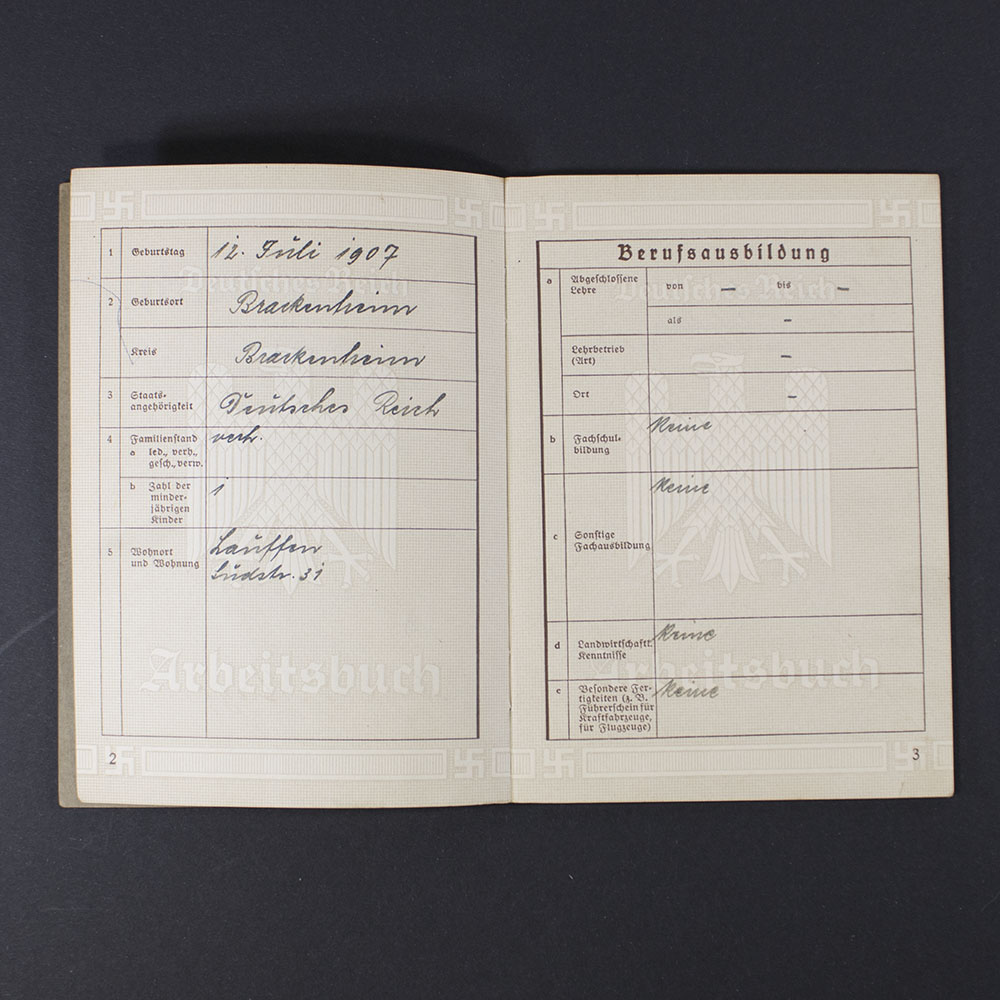 1 Geburtstag 12. Juli 1907
Deutsches Reich
2 Geburtsort Brackenheim
Kreis Brackenheim
3 Staats-
angehörigkeit Deutsches Reich
4 Familienstand verh.
a led., verh.,
gesch., verw.
b Zahl der 1
minder-
jährigen
Kinder
5 Wohnort Lauffen
und Wohnung Südstr. 31
Arbeitsbuch
2
Berufsausbildung
a Abgeschlossene
Lehre von – bis –
Deutsches Reich
als –
Lehrbetrieb
(Art) –
Ort –
b Fachschul- Keine
bildung
c Sonstige Keine
Fachausbildung
d Landwirtschaftl. Keine
Kenntnisse
Arbeitsbuch
e Besondere Fer- Keine
tigkeiten (z. B.
Führerschein für
Kraftfahrzeuge,
für Flugzeuge)
3